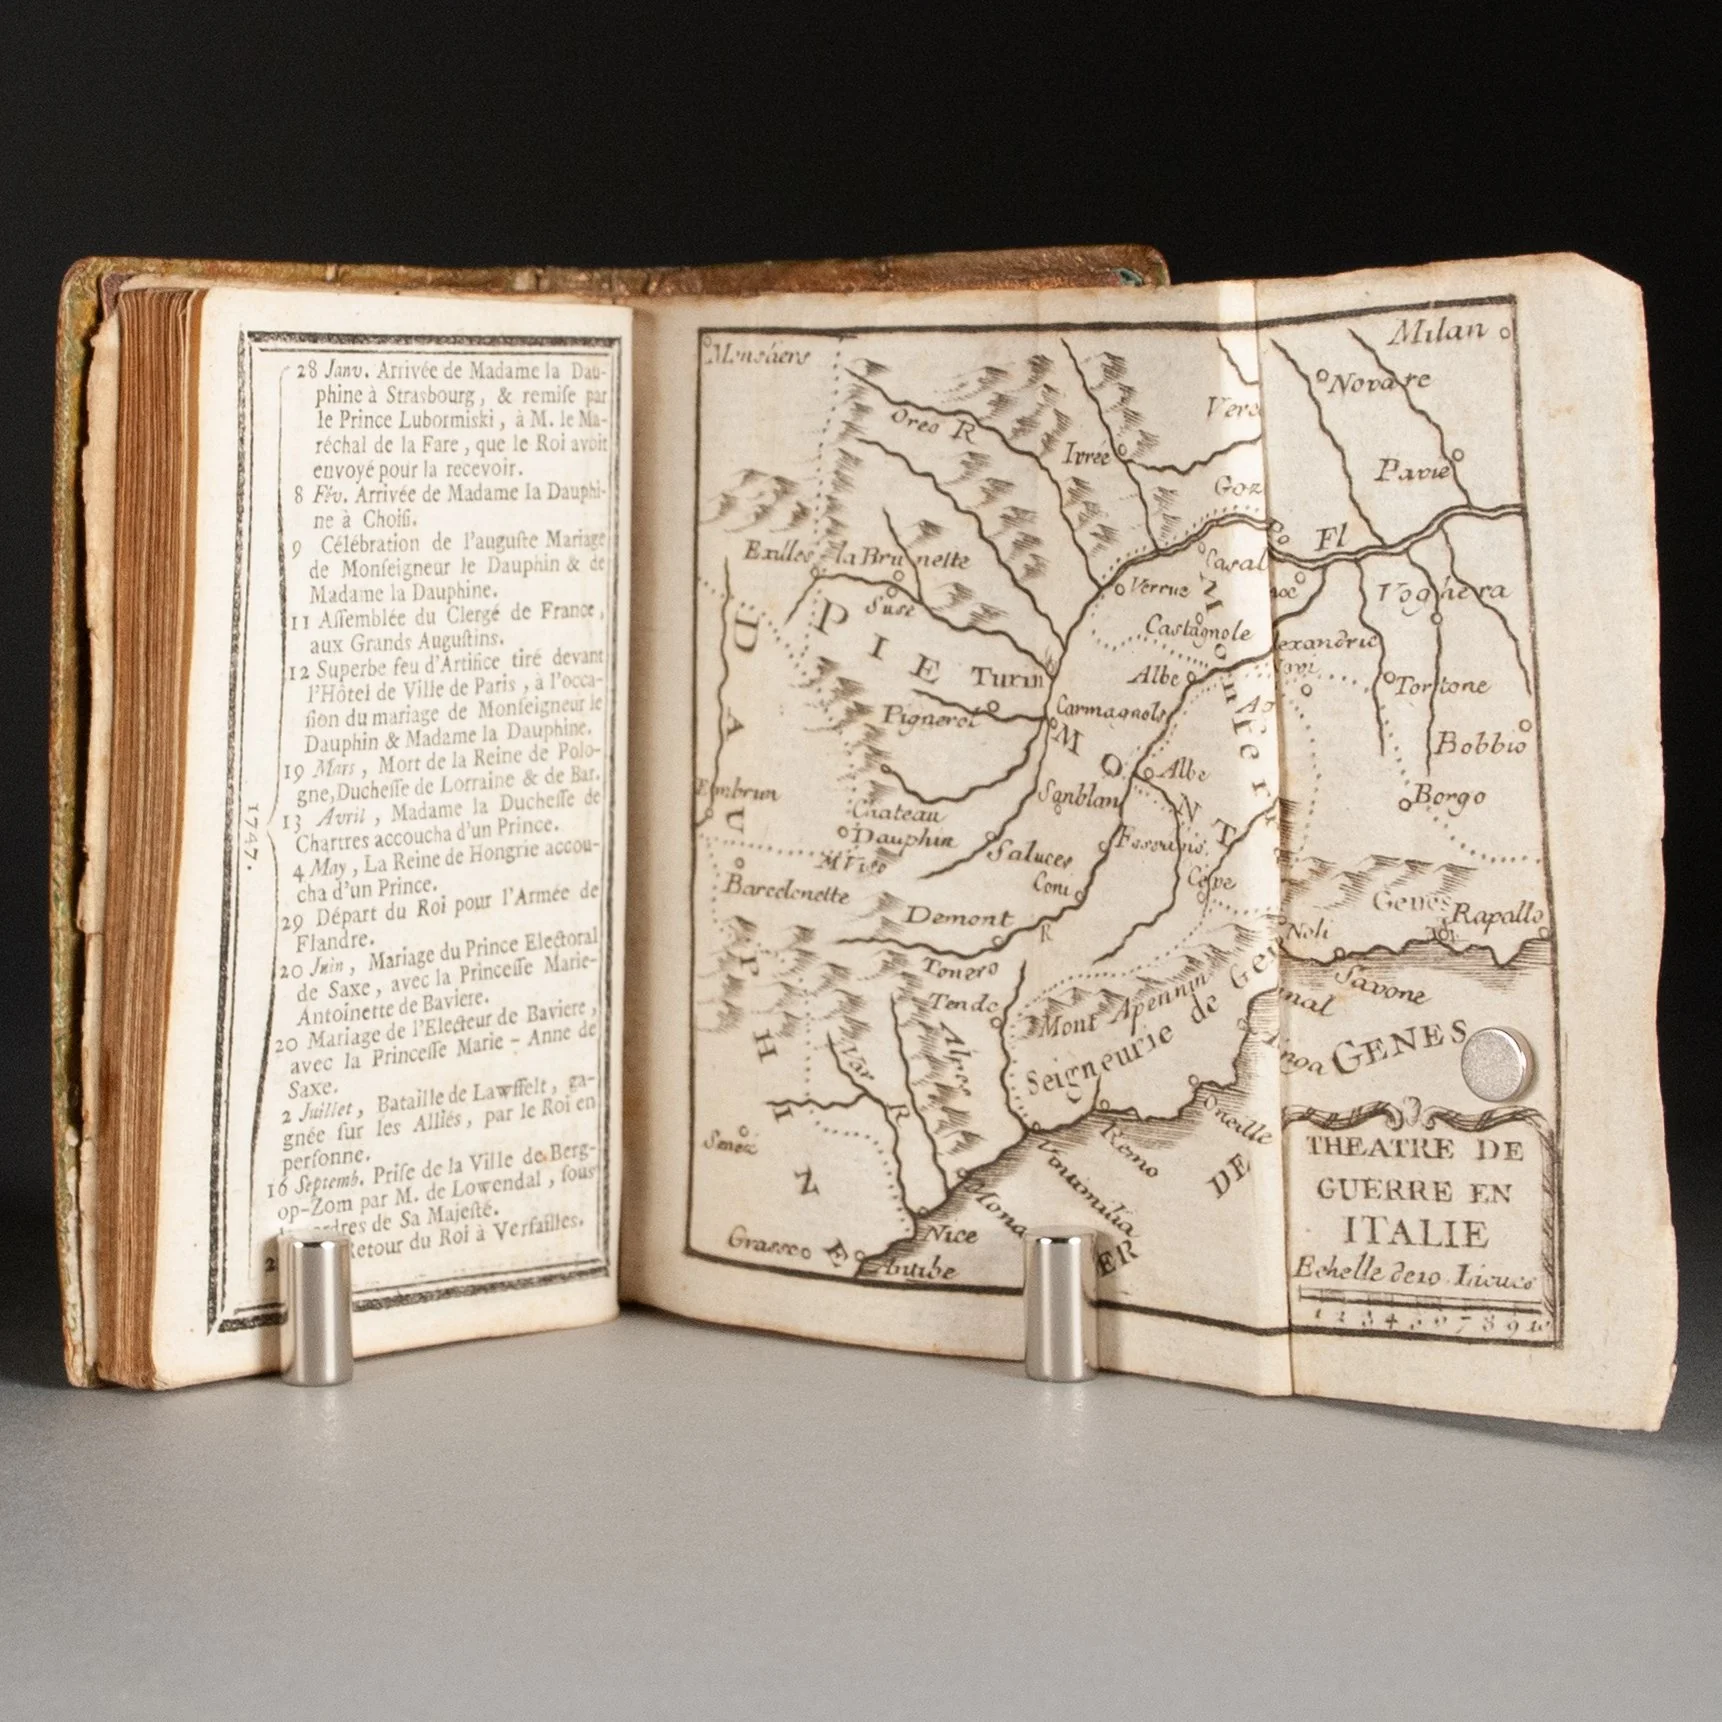 28 Janv. Arrivée de Madame la Dau-
phine à Strasbourg, & remiſe par
le Prince Lubormiski, à M. le Ma-
réchal de la Fare, que le Roi avoit
envoyé pour la recevoir.
8 Fév. Arrivée de Madame la Dauphi-
ne à Choiſi.
9 Célébration de l'auguſte Mariage
de Monſeigneur le Dauphin & de
Madame la Dauphine.
11 Aſſemblée du Clergé de France,
aux Grands Auguſtins.
12 Superbe feu d'Artifice tiré devant
l'Hôtel de Ville de Paris, à l'occa-
ſion du mariage de Monſeigneur le
Dauphin & Madame la Dauphine.
19 Mars, Mort de la Reine de Polo-
gne, Ducheſſe de Lorraine & de Bar.
13 Avril, Madame la Ducheſſe de
Chartres accoucha d'un Prince.
4 May, La Reine de Hongrie accou-
cha d'un Prince.
29 Départ du Roi pour l'Armée de
Flandre.
20 Juin, Mariage du Prince Electoral
de Saxe, avec la Princeſſe Marie-
Antoinette de Baviere.
20 Mariage de l'Electeur de Baviere,
avec la Princeſſe Marie-Anne de
Saxe.
2 Juillet, Bataille de Lawffelt, ga-
gnée ſur les Alliés, par le Roi en
perſonne.
16 Septemb. Priſe de la Ville de Berg-
op-Zom par M. de Lowendal, ſous
ordres de Sa Majeſté.
Retour du Roi à Verſailles.
1747.
Milan
Novare
Oreo R
Ivrée
Pavie
Po Fl
Exilles
la Brunette
Suse
Casal
Verrue
Voghera
Castagnole
PIE
MONT
Turin
Albe
Tortone
Pignerol
Carmagnole
Montferra
Bobbio
Albe
Embrun
Borgo
Chateau
Dauphin
M Viso
Saluces
Coni
Barcelonette
Demont
R
Genes
Rapallo
Noli
Tende
Savone
Mont Apennin
Seigneurie de Gen
Alpes
Var R
DAUPHINE
GENES
DE
ER
Oneille
Remo
Nice
Grasse
THEATRE DE
GUERRE EN
ITALIE
Echelle de 10 Lieues
1 2 3 4 5 6 7 8 9 10